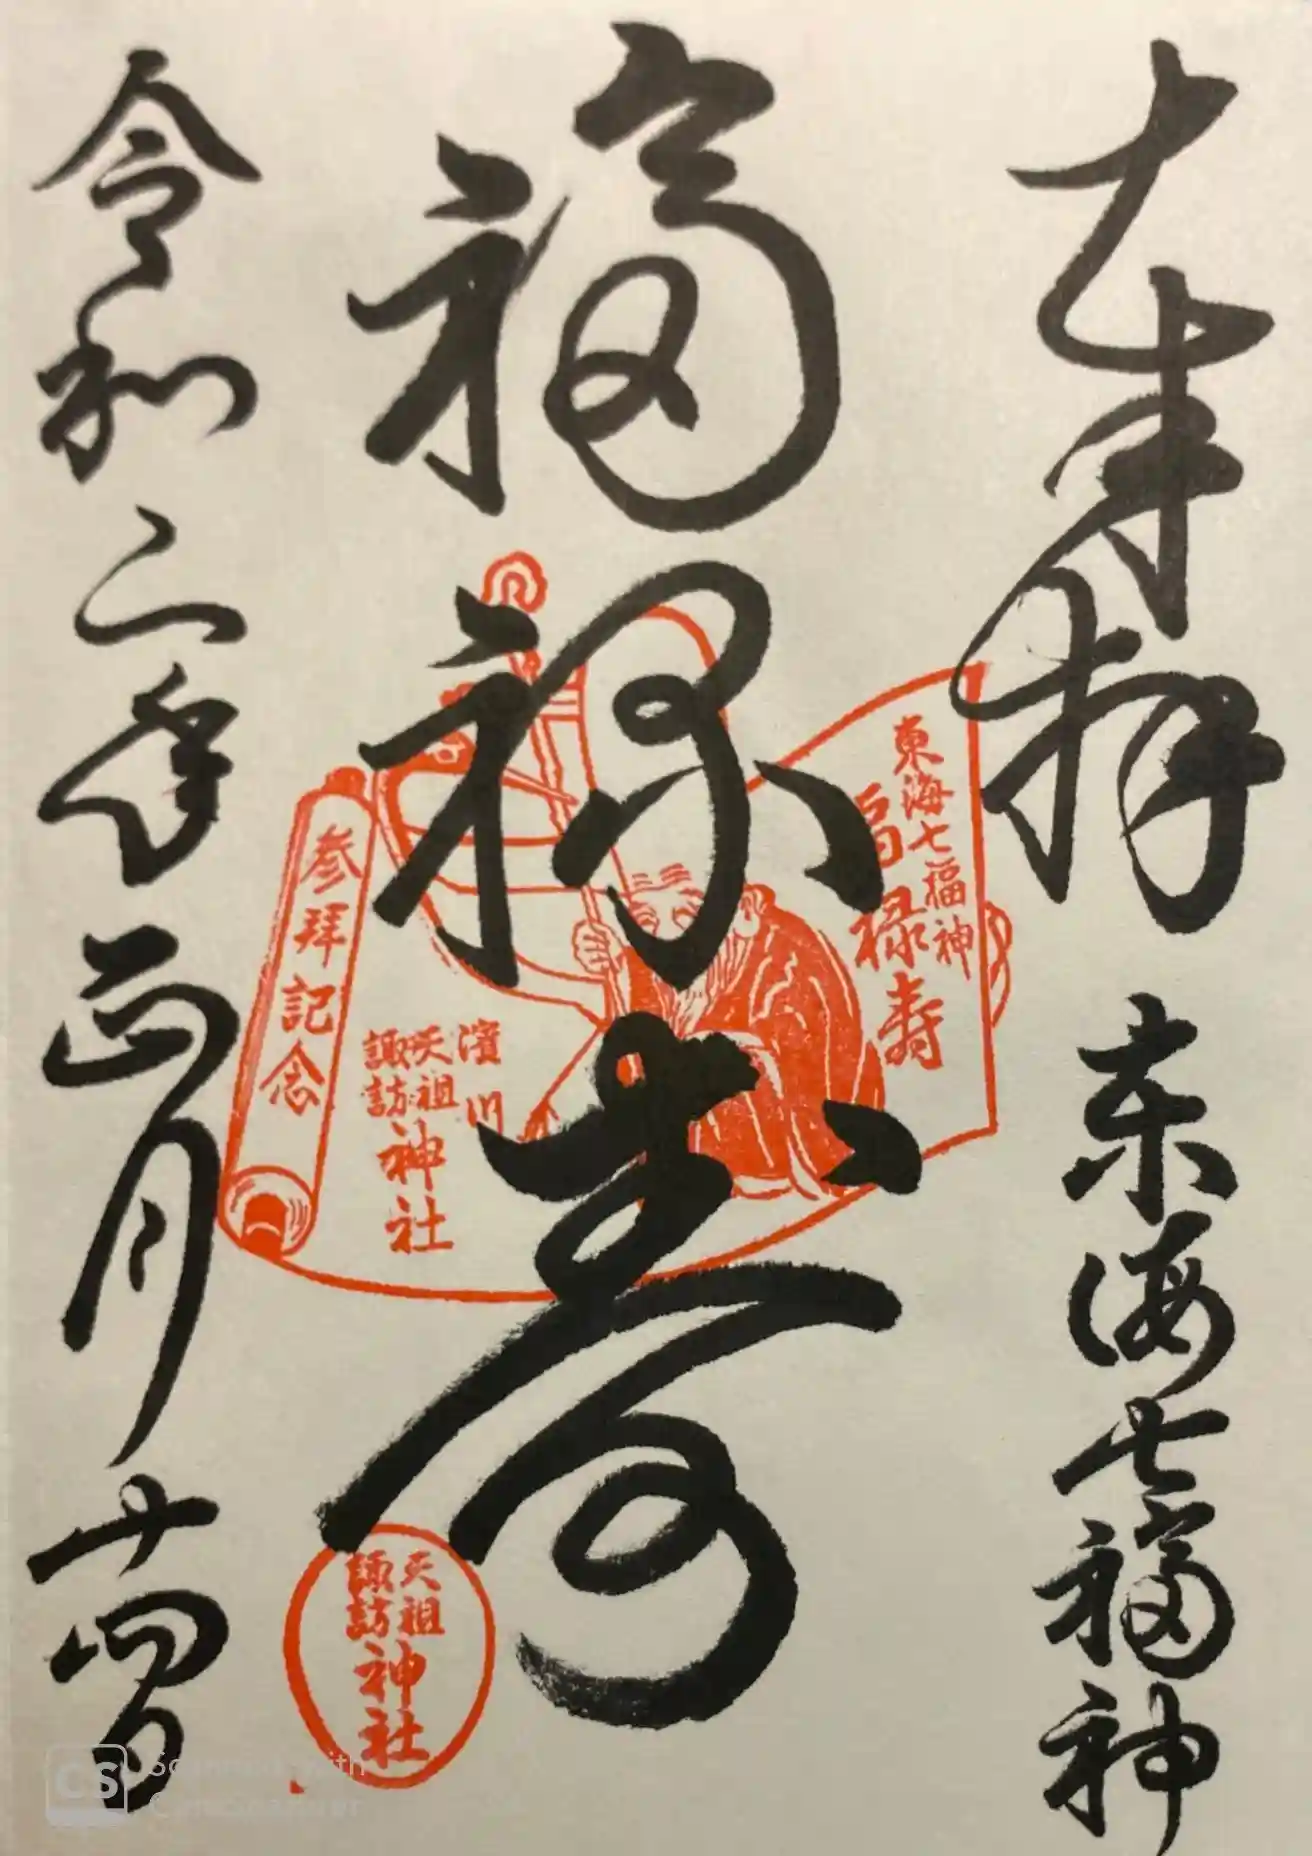 奉拝 東海七福神
福禄寿
令和二年正月廿四日
東海七福神
福禄寿
濱川
天祖
諏訪
神社
参拝記念
天祖
諏訪
神社
CS Scanned with
CamScanner